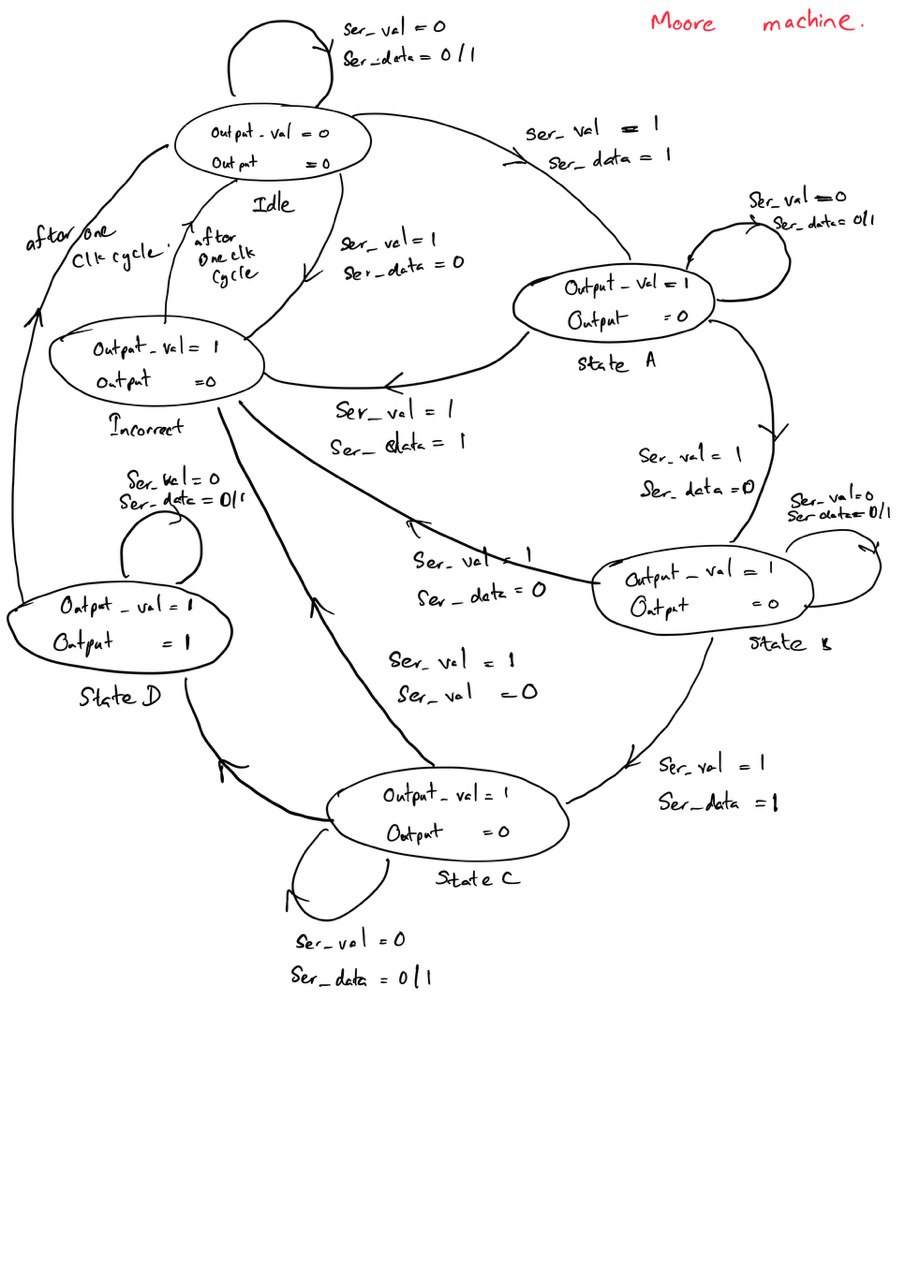 Moore machine.
Ser_val = 0
Ser_data = 0/1
Output-val = 0
Output = 0
Idle
Ser_val = 1
Ser_data = 1
after one
Clk cycle.
after
one clk
cycle
Ser_val = 1
Ser_data = 0
Ser_val = 0
Ser_data = 0/1
Output-val = 1
Output = 0
State A
Output-val = 1
Output = 0
Incorrect
Ser_val = 1
Ser_data = 1
Ser_val = 1
Ser_data = 0
Ser_val = 0
Ser_data = 0/1
Ser_val = 0
Ser data = 0/1
Ser_val = 1
Ser_data = 0
Output_val = 1
Output = 0
State B
Output-val = 1
Output = 1
State D
Ser_val = 1
Ser_val = 0
Ser_val = 1
Ser_data = 1
Output-val = 1
Output = 0
State C
Ser_val = 0
Ser_data = 0/1